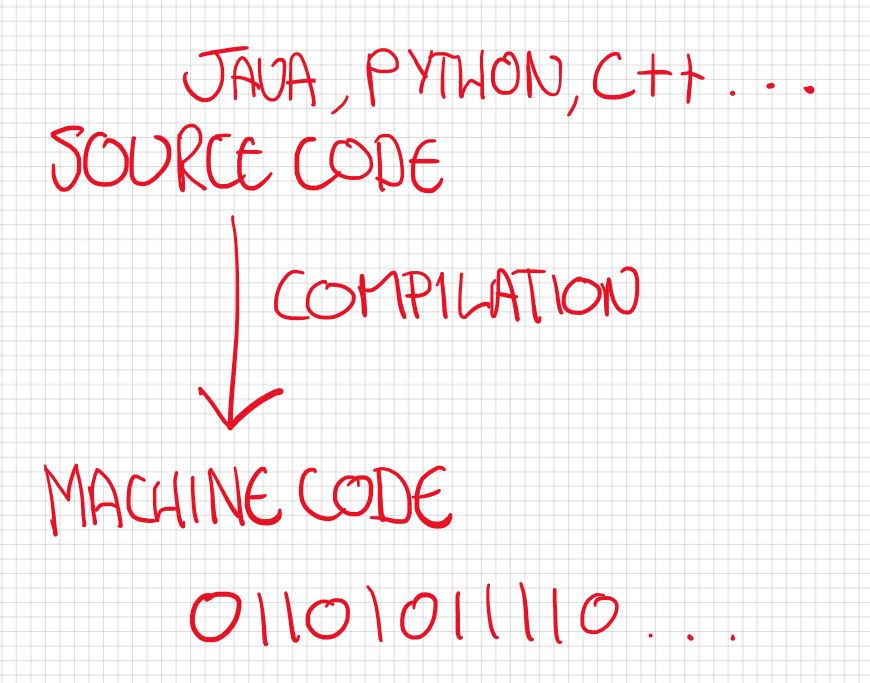 JAVA, PYTHON, C++...
SOURCE CODE
COMPILATION
MACHINE CODE
0110101011110...